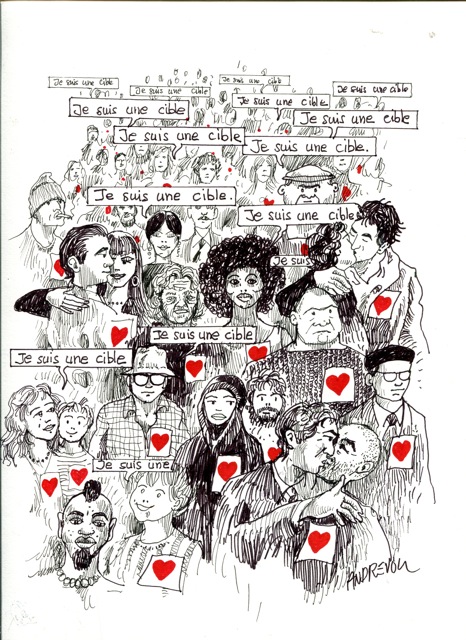 Je suis une cible
Je suis une cible
Je suis une cible
Je suis une cible
Je suis une cible
Je suis une cible
Je suis une cible
Je suis une cible
Je suis une cible.
Je suis une cible.
Je suis une cible
Je suis
Je suis une cible
Je suis une cible
Je suis une
ANDREVON